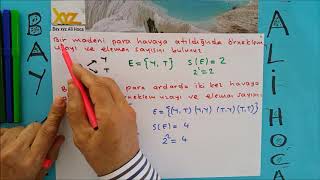 XYZ
Bay xyz Ali Hoca
BAY
ALİ HOCA
Bir madeni para havaya atıldığında örneklem
uzayı ve eleman sayısını bulunuz
Y
T
E = {Y, T} S(E) = 2
2¹ = 2
para ardarda iki kez havaya
örneklem uzayı ve eleman sayısını
E = {(Y, T) (Y, Y) (T, Y) (T, T)}
S(E) = 4
2² = 4